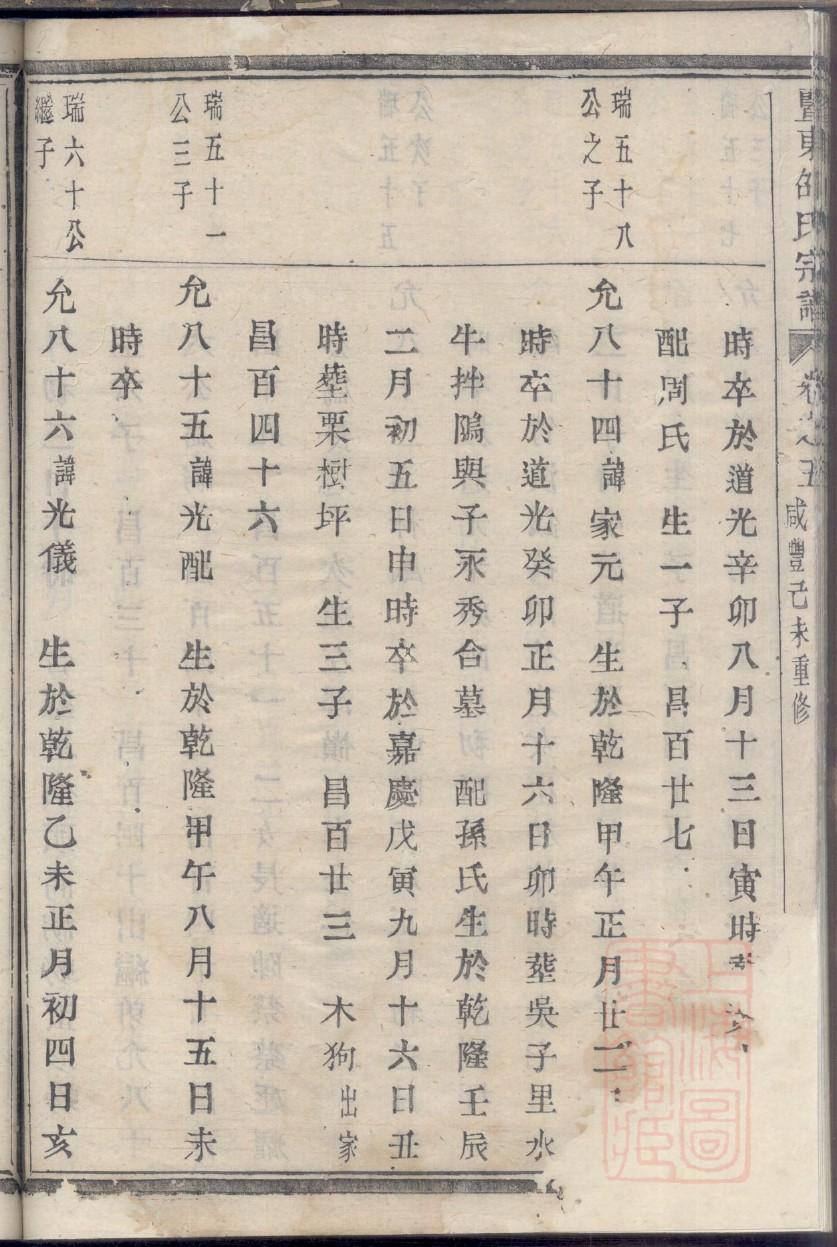 暨東邵氏宗譜 卷之五 咸豐己未重修
時卒於道光辛卯八月十三日寅時
配周氏 生一子 昌百廿七
瑞五十八
公之子
允八十四諱家元 生於乾隆甲午正月廿二
時卒於道光癸卯正月十六日卯時塟吳子里水
牛拌隖與子永秀合墓 配孫氏生於乾隆壬辰
二月初五日申時卒於嘉慶戊寅九月十六日丑
時塟栗樹坪 生三子 昌百廿三 木狗出家
昌百四十六
瑞五十一
公三子
允八十五諱光配 生於乾隆甲午八月十五日未
時卒
瑞六十公
繼子
允八十六諱光儀 生於乾隆乙未正月初四日亥
上海圖
書館藏